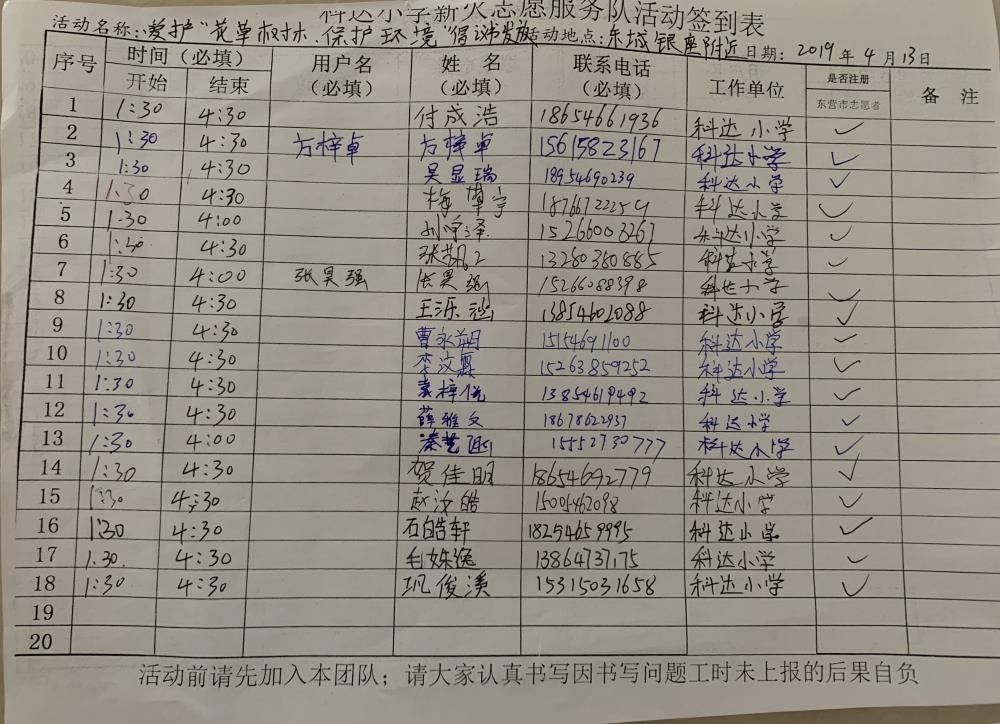 科达小学新火志愿服务队活动签到表
活动名称:爱护"花草树林、保护环境"倡议书发放 活动地点:东城银座附近 日期:2019年4月13日
序号 时间(必填) 用户名(必填) 姓名(必填) 联系电话(必填) 工作单位 是否注册东营市志愿者 备注
开始 结束
1 1:30 4:30 付成浩 18654661936 科达小学 ✓
2 1:30 4:30 方梓卓 方梓卓 15615823167 科达小学 ✓
3 1:30 4:30 吴显瑞 18954690239 科达小学 ✓
4 1:30 4:30 18766722254 科达小学 ✓
5 1:30 4:00 15266003267 科达小学 ✓
6 4:30 13280380885 科达小学 ✓
7 1:30 4:00 张昊强 张昊强 15266088398 科达小学 ✓
8 1:30 4:30 王泺涵 13854602088 科达小学 ✓
9 1:30 4:30 曹永朔 15154691100 科达小学 ✓
10 1:30 4:30 李汶霖 15263859252 科达小学 ✓
11 1:30 4:30 袁梓悦 13854619492 科达小学 ✓
12 1:30 4:30 薛雅文 18678622937 科达小学 ✓
13 1:30 4:00 15552730777 科达小学 ✓
14 1:30 4:30 贺佳明 18654692779 科达小学 ✓
15 1:30 4:30 赵汝皓 15005462098 科达小学 ✓
16 1:30 4:30 石皓轩 18254659995 科达小学 ✓
17 1:30 4:30 毛姝逸 13864737175 科达小学 ✓
18 1:30 4:30 巩俊溪 15315031658 科达小学 ✓
19
20
活动前请先加入本团队;请大家认真书写因书写问题工时未上报的后果自负